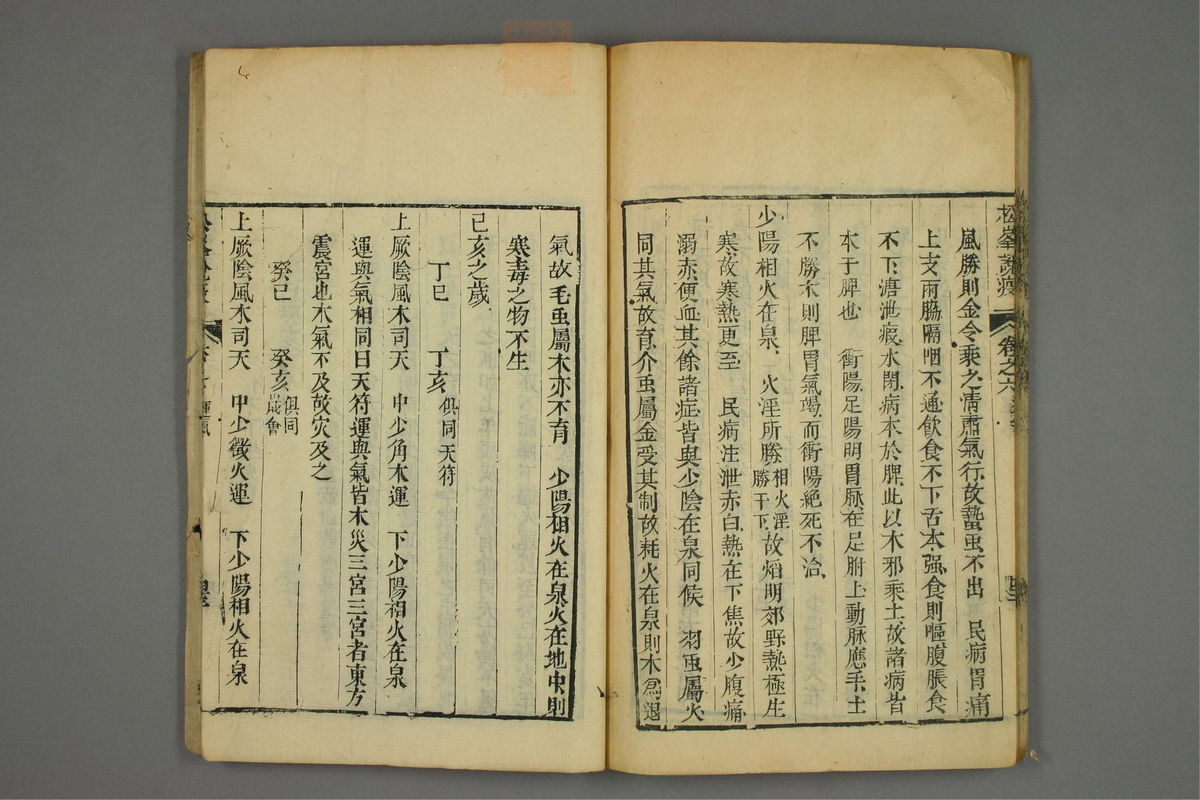 松峯說疫
卷之六
風勝則金令乘之清肅氣行故蟄虫不出 民病胃痛
上支兩脇隔咽不通飲食不下舌本强食則嘔腹脹食
不下溏泄瘕水閉病本於脾此以木邪乘土故諸病皆
本于脾也 衝陽足陽明胃脉在足胕上動脉應手土
不勝木則脾胃氣竭而衝陽絕死不治
少陽相火在泉 火淫所勝相火淫勝于下故熖明郊野熱極生
寒故寒熱更至 民病注泄赤白熱在下焦故少腹痛
溺赤便血其餘諸症皆與少陰在泉同候 羽虫屬火
同其氣故育介虫屬金受其制故耗火在泉則木爲退
氣故毛虫屬木亦不育 少陽相火在泉火在地中則
寒毒之物不生
巳亥之歲
丁巳 丁亥俱同天符
上厥陰風木司天 中少角木運 下少陽相火在泉
運與氣相同曰天符運與氣皆木災三宮三宮者東方
震宮也木氣不及故灾及之
癸巳 癸亥俱同歲會
上厥陰風木司天 中少徵火運 下少陽相火在泉
運氣